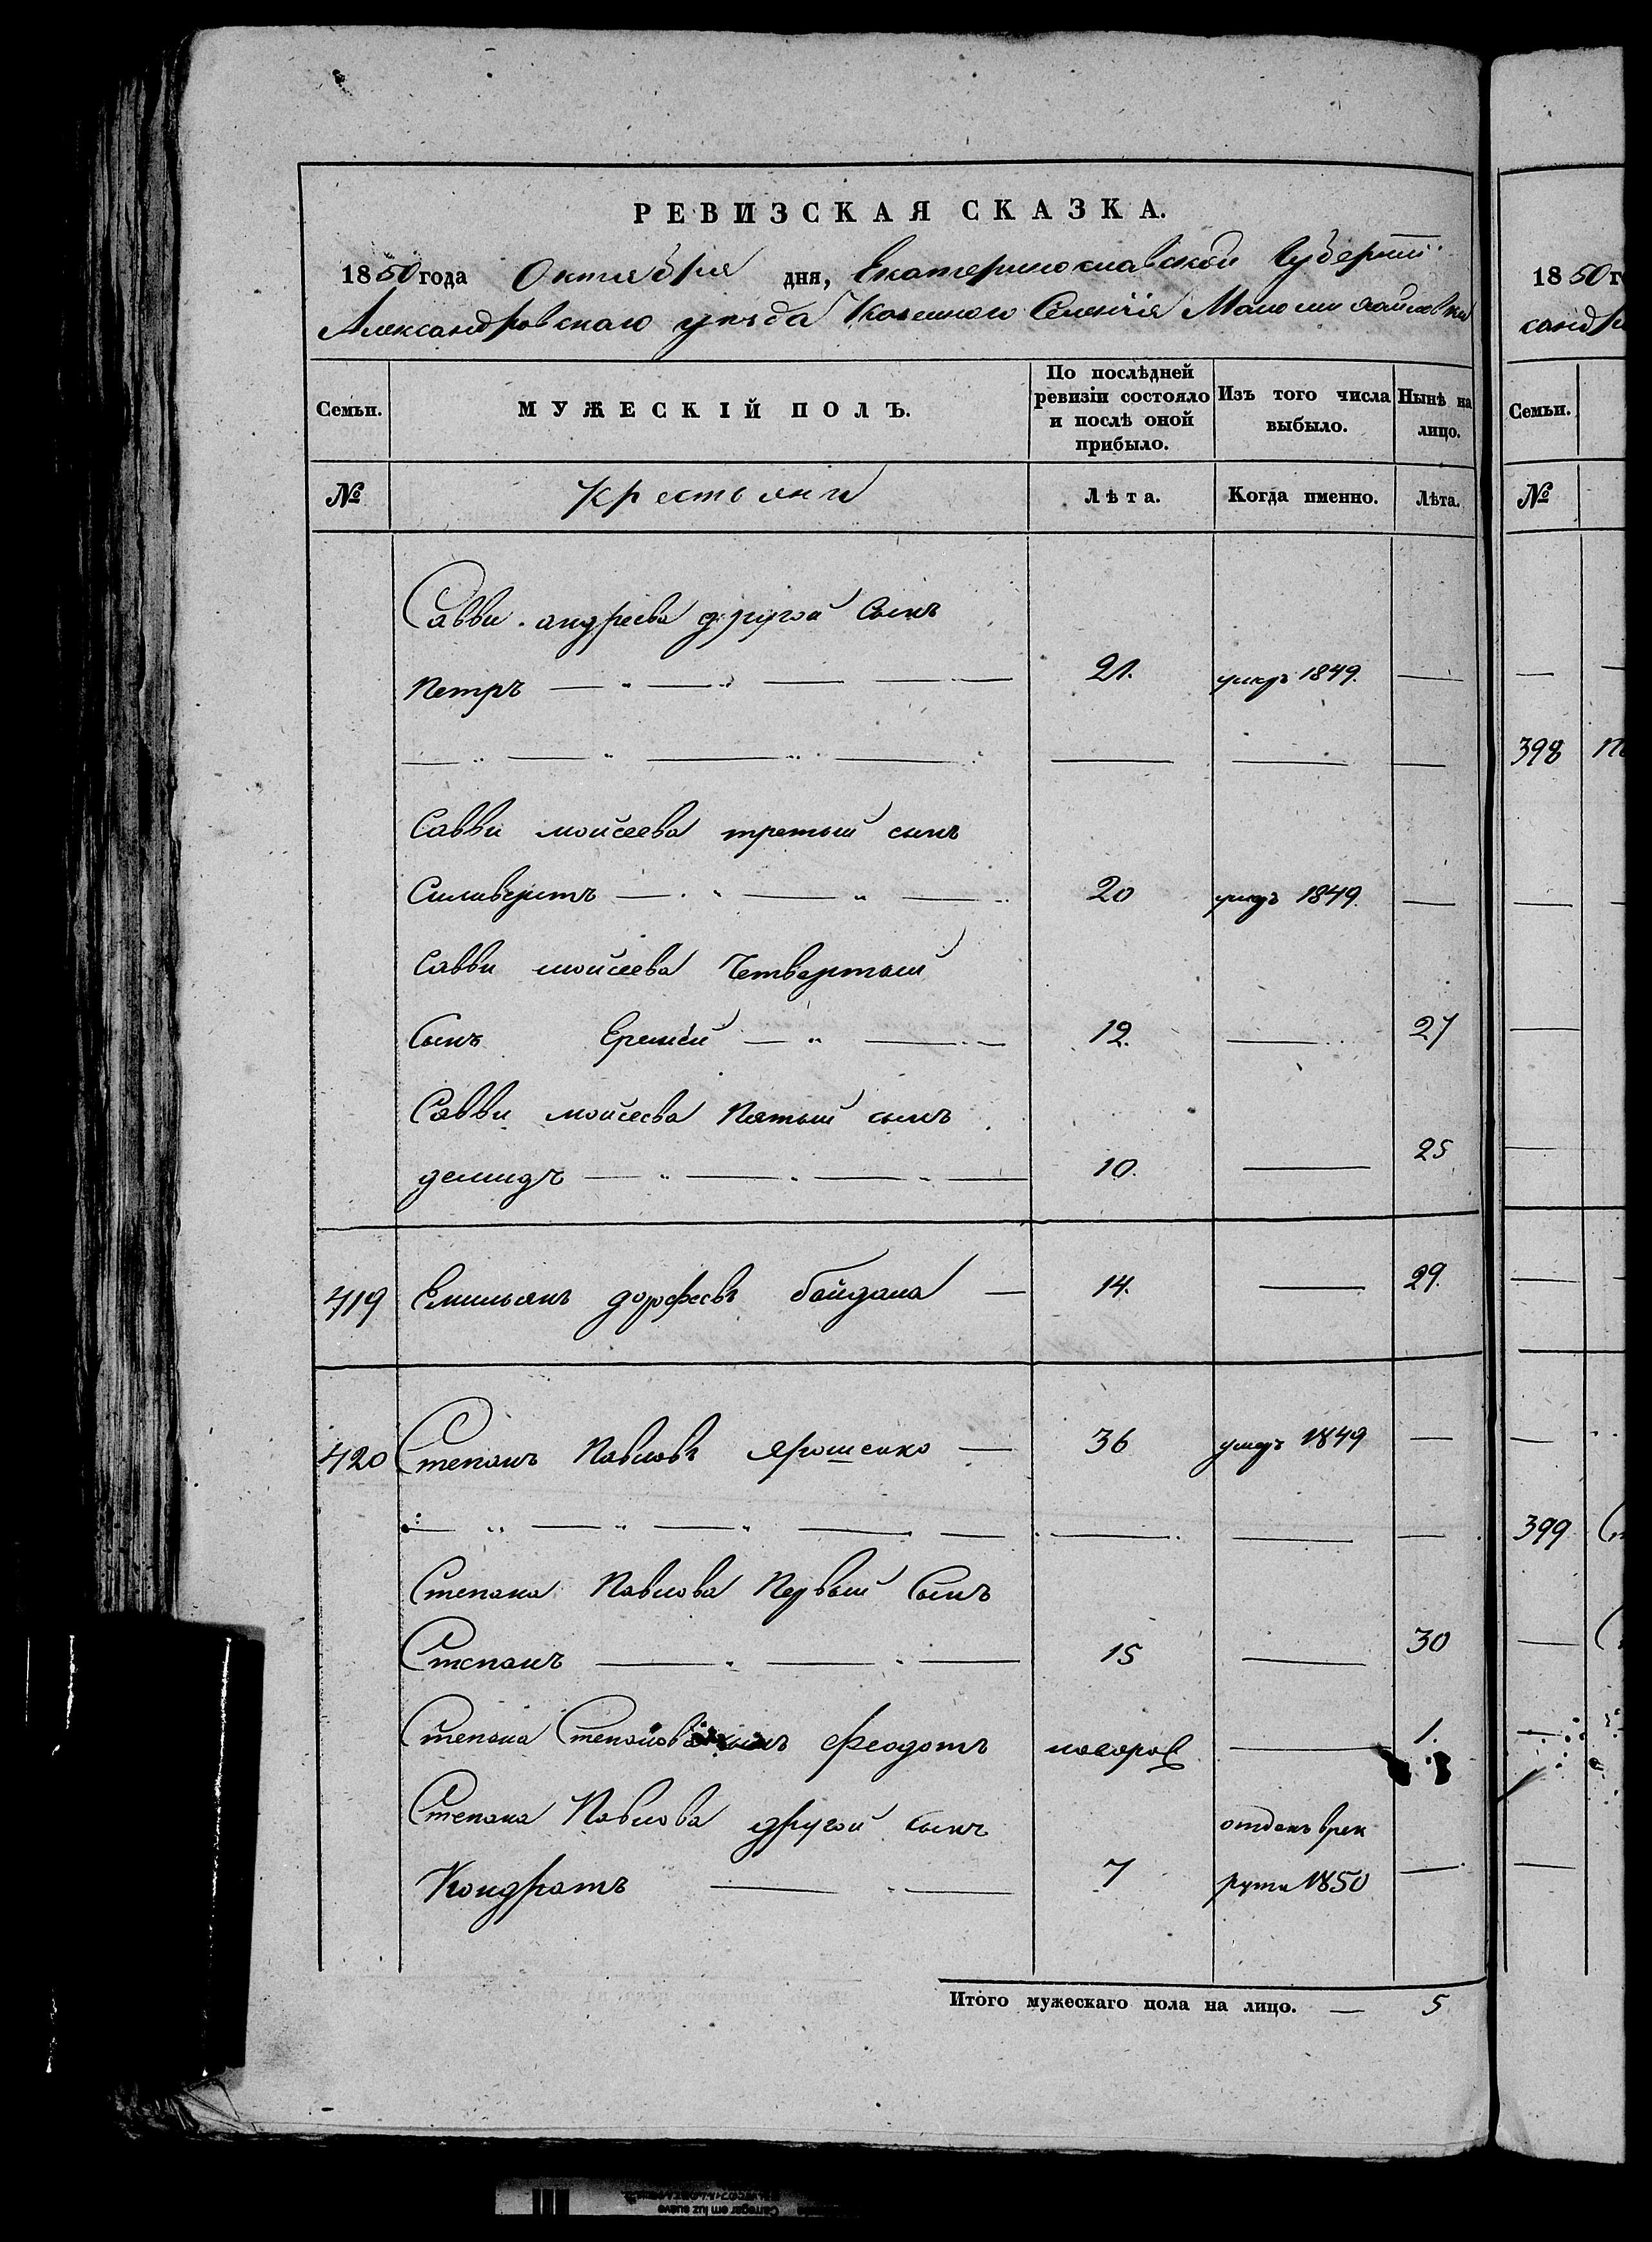 РЕВИЗСКАЯ СКАЗКА.
1850 года Октября дня, Екатеринославской Губерніи
Александровскаго уѣзда Казеннаго Селенія Маломихайловки
Семьи. МУЖЕСКІЙ ПОЛЪ. По послѣдней ревизіи состояло и послѣ оной прибыло. Изъ того числа выбыло. Нынѣ на лицо.
№ Крестьяни Лѣта. Когда именно. Лѣта.
Савви андреева другой Сынъ
Петръ 21. умеръ 1849.
Савви моисеева третьій сынъ
Силиверстъ 20 умеръ 1849.
Савви моисеева Четвертый
Сынъ Еремѣй 12. 27
Савви моисеева Пятый сынъ
демидъ 10. 25
419 Емильянъ дорофеевъ байдала 14. 29.
420 Степанъ Павловъ Ярошенко 36 умеръ 1849
Степана Павлова Первый Сынъ
Степанъ 15 30
Степана Степанова сынъ Феодотъ новорож 1.
Степана Павлова другой сынъ отданъ врек
Кондратъ 7 рути 1850
Итого мужескаго пола на лицо. 5
1850 г
санд
Семьи.
№
398
399